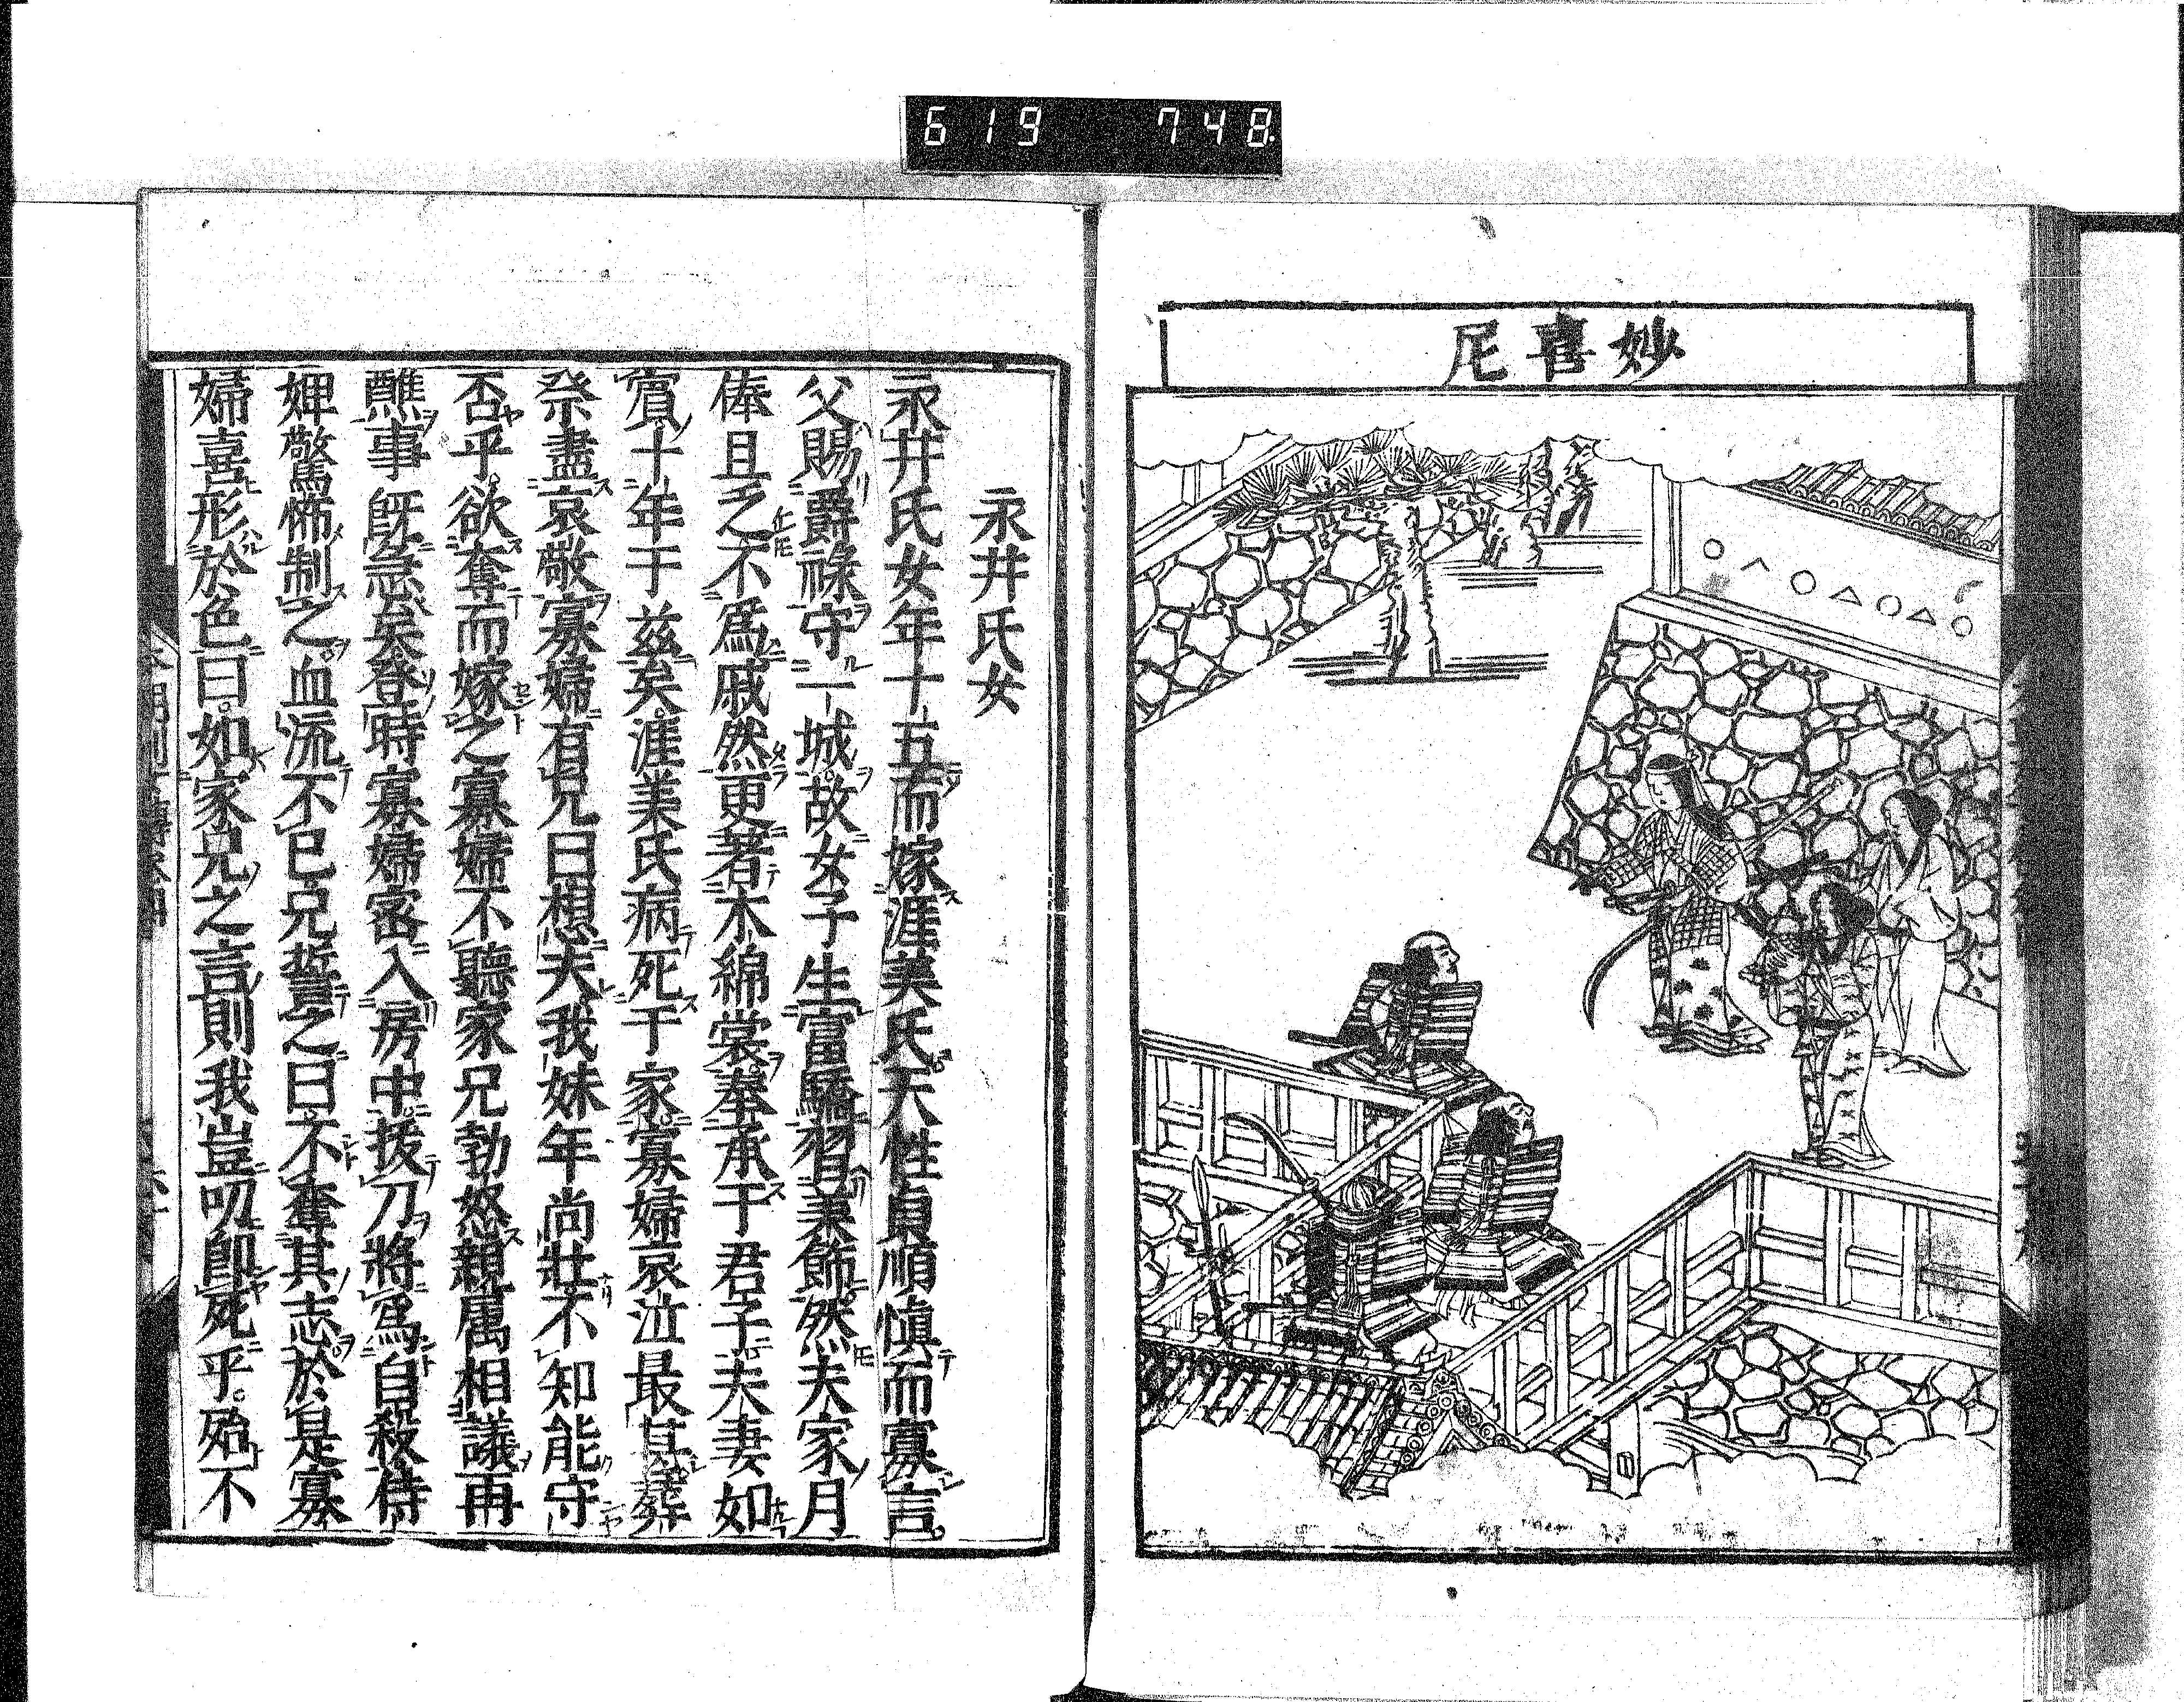 619 748
妙喜尼
永井氏女
永井氏女年十五而嫁渥美氏天性貞順愼而寡言
父賜爵祿守一城故女子生富驕習美飾然夫家月
俸且乏不爲戚然更著木綿裳奉承于君子夫妻如
賓十年于茲矣渥美氏病死于家寡婦哀泣最甚葬
祭盡哀敬寡婦有兄曰想夫我妹年尚壯不知能守
否乎欲奪而嫁之寡婦不聽家兄勃怒親属相議再
醮事既急矣登時寡婦密入房中拔刀將爲自殺侍
婢驚怖制之血流不已兄誓之曰不奪其志於是寡
婦喜形於色曰如家兄之言則我豈叨卽死乎殆不